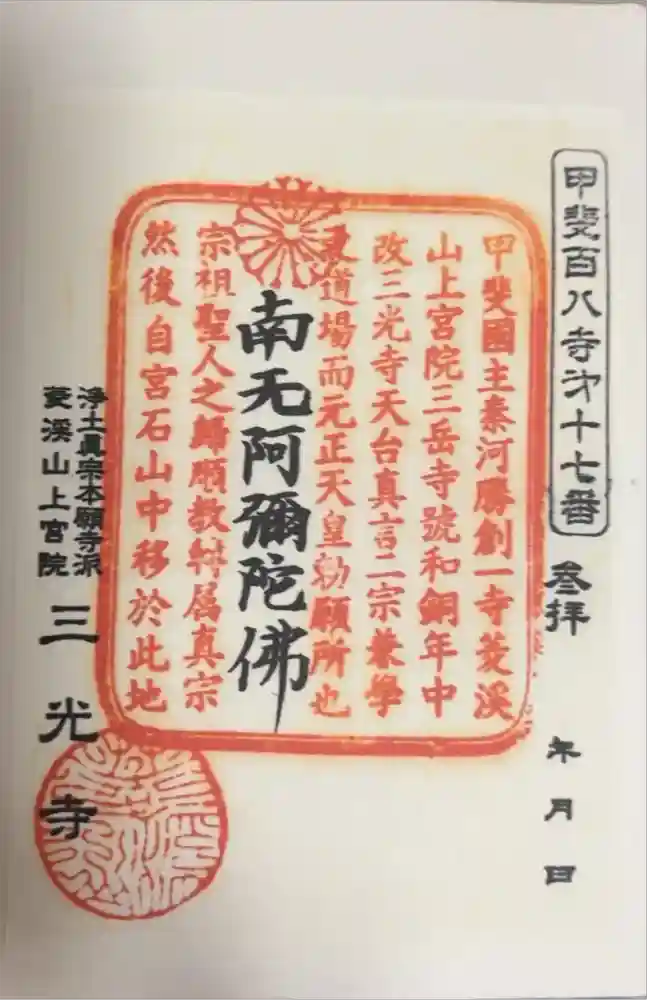 甲斐百八寺第十七番
参拝
年月日
甲斐國主秦河勝創一寺菱渓
山上宮院三岳寺號和銅年中
改三光寺天台真言二宗兼學
道場而元正天皇勅願所也
南无阿彌陀佛
宗祖聖人之歸順教特属真宗
然後自宮石山中移於此地
浄土眞宗本願寺派
菱渓山上宮院
三光寺